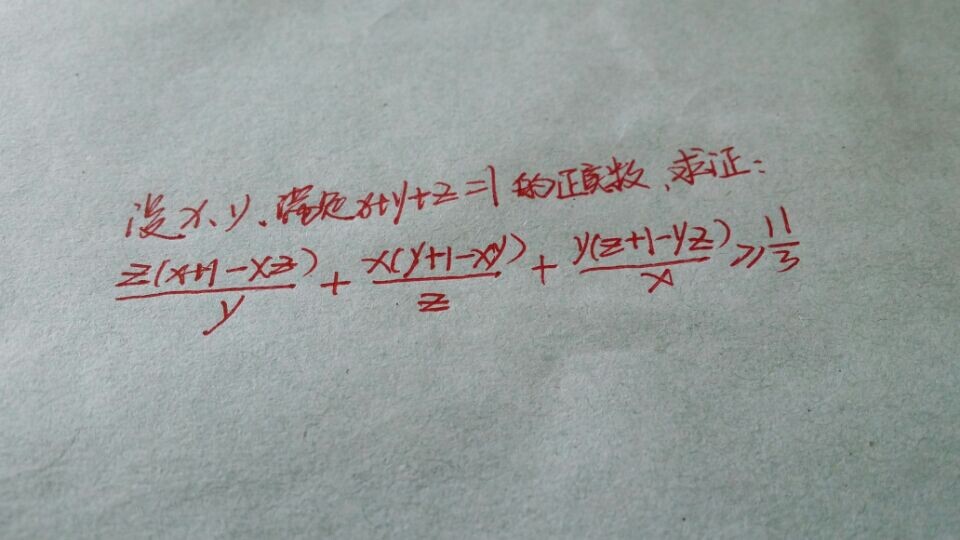 设x、y、满足x+y+z=1的正实数、求证:
z(x+1-xz)/y + x(y+1-xy)/z + y(z+1-yz)/x ≥ 11/3